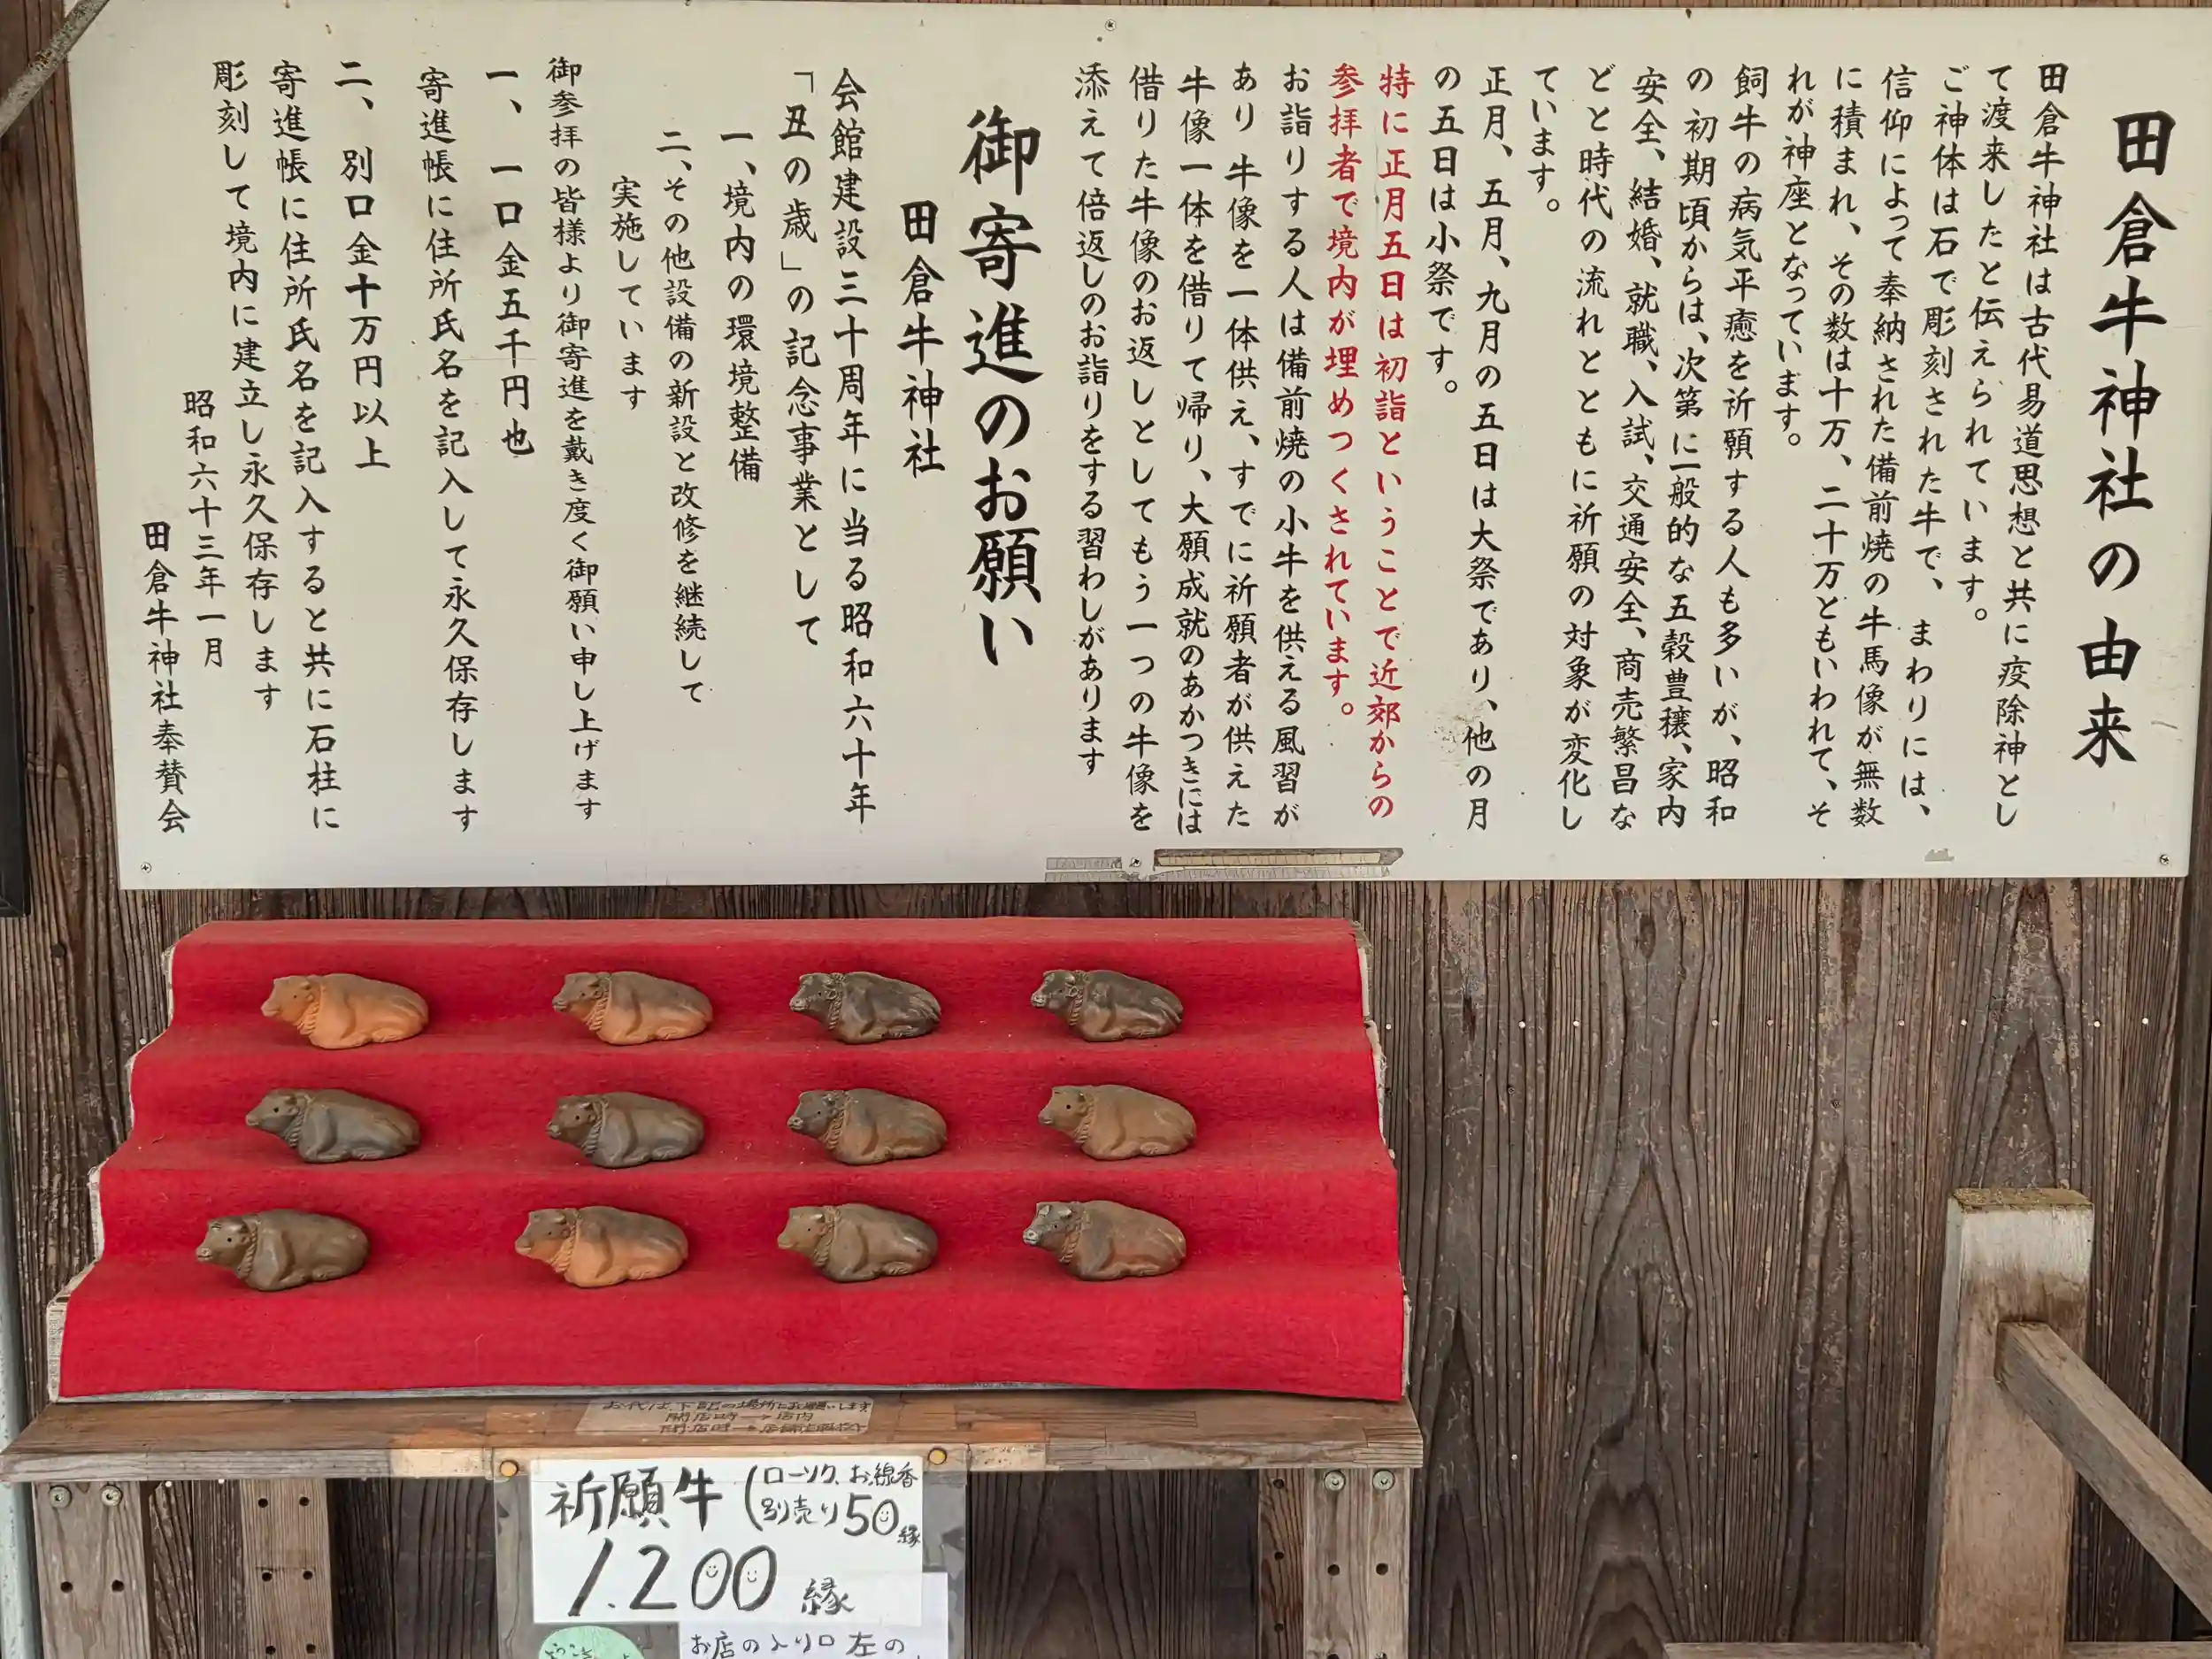 田倉牛神社の由来
田倉牛神社は古代易道思想と共に疫除神とし
て渡来したと伝えられています。
ご神体は石で彫刻された牛で、まわりには、
信仰によって奉納された備前焼の牛馬像が無数
に積まれ、その数は十万、二十万ともいわれて、そ
れが神座となっています。
飼牛の病気平癒を祈願する人も多いが、昭和
の初期頃からは、次第に一般的な五穀豊穣、家内
安全、結婚、就職、入試、交通安全、商売繁昌な
どと時代の流れとともに祈願の対象が変化し
ています。
正月、五月、九月の五日は大祭であり、他の月
の五日は小祭です。
特に正月五日は初詣ということで近郊からの
参拝者で境内が埋めつくされています。
お詣りする人は備前焼の小牛を供える風習が
あり 牛像を一体供え、すでに祈願者が供えた
牛像一体を借りて帰り、大願成就のあかつきには
借りた牛像のお返しとしてもう一つの牛像を
添えて倍返しのお詣りをする習わしがあります
御寄進のお願い
田倉牛神社
会館建設三十周年に当る昭和六十年
「丑の歳」の記念事業として
一、境内の環境整備
二、その他設備の新設と改修を継続して
実施しています
御参拝の皆様より御寄進を戴き度く御願い申し上げます
一、一口金五千円也
寄進帳に住所氏名を記入して永久保存します
二、別口金十万円以上
寄進帳に住所氏名を記入すると共に石柱に
彫刻して境内に建立し永久保存します
昭和六十三年一月
田倉牛神社奉賛会
お代は下記の場所にお願いします
開店時→店内
閉店時→店舗
祈願牛(ローソク、お線香
別売り50縁
1.200縁
お店の入り口左の